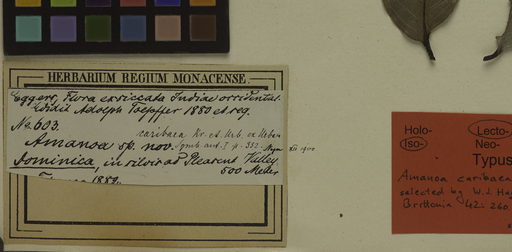 HERBARIUM REGIUM MONACENSE.
Eggers, Flora exsiccata Indiae occidental.
Edidit Adolph Toepffer 1880 et seq.
No. 603.
caribaea Kr. et Urb. ex Urban
Amanoa sp. nov. Symb. ant. I p. 332.
Dominica, in silvis ad Pleasent Valley
500 Meter
1882.
Holo- Lecto-
Iso- Neo-
Typus
Amanoa caribaea
selected by W.J. Hay
Brittonia 42: 260.